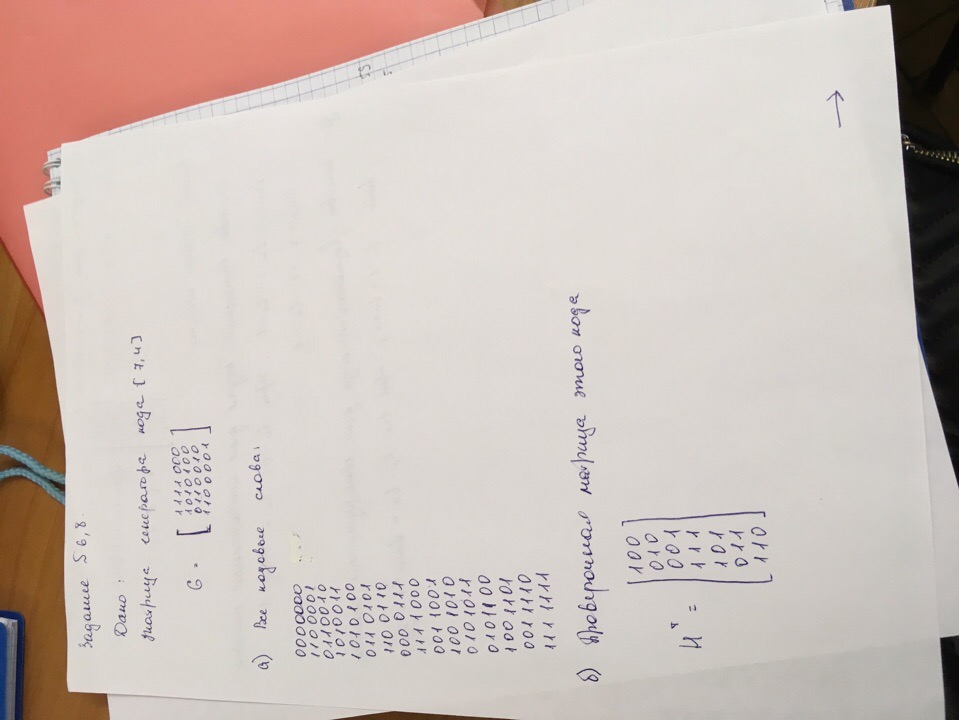 Задание 5 6,8.
Дано:
Матрица генератора кода [7,4]
G = [
1111000
1010100
0110010
1100001
]
а) Все кодовые слова:
0000000
1100001
0110010
1010011
1010100
0110101
1100110
0000111
1111000
0011001
1001010
0101011
0101100
1001101
0011110
1111111
б) Проверочная матрица этого кода
Hᵀ = [
100
010
001
111
101
011
110
]
→